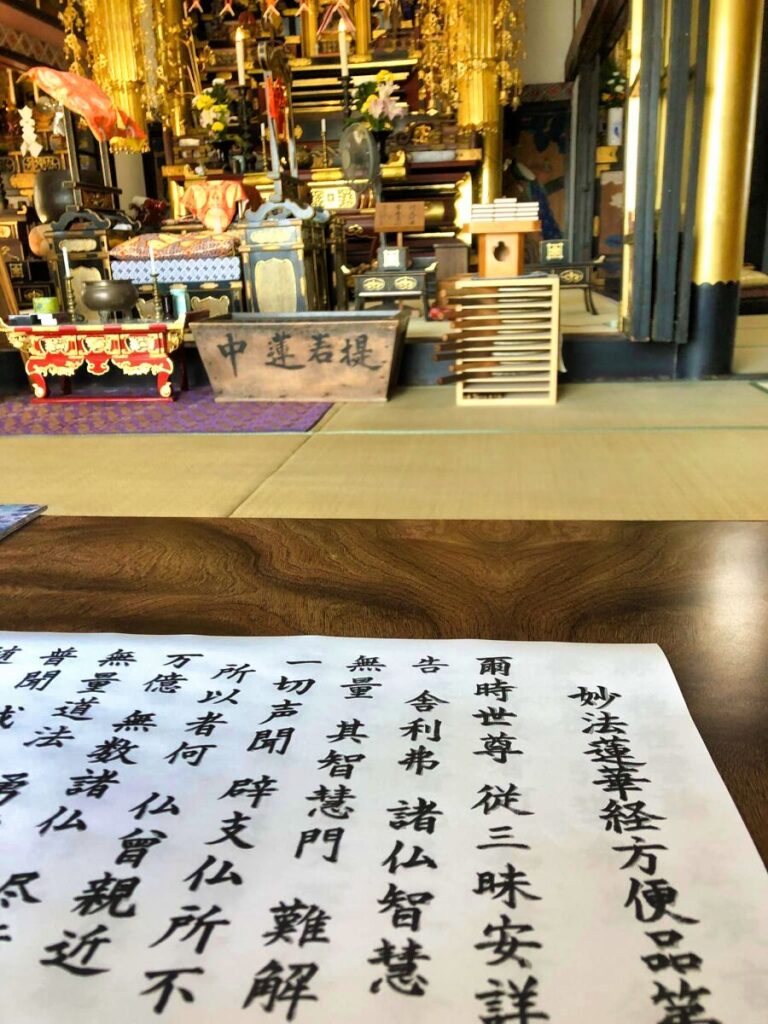 提若蓮中
妙法蓮華経方便品第
爾時世尊 従三昧安詳
告 舎利弗 諸仏智慧
無量 其智慧門 難解
一切声聞 辟支仏所不
所以者何 仏曾親近
万億 無数諸仏 尽
無量道法 勇
普聞